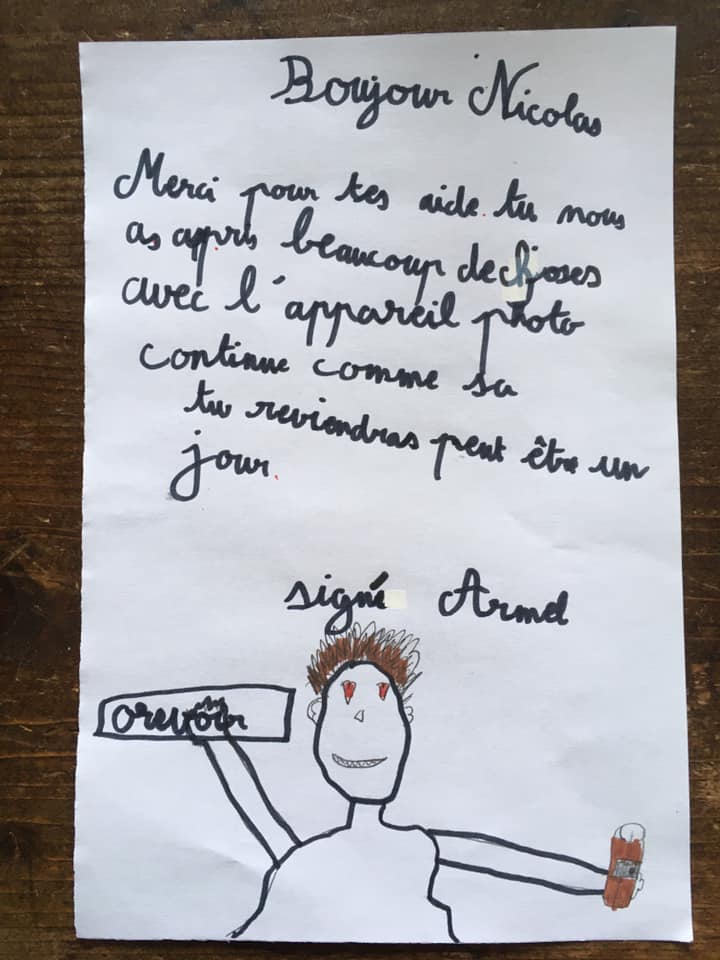 Boujour Nicolas
Merci pour tes aide. tu nous
as appris beaucoup de choses
avec l'appareil photo
continue comme sa
tu reviendras peut être un
jour.
signé Armel
orevoir